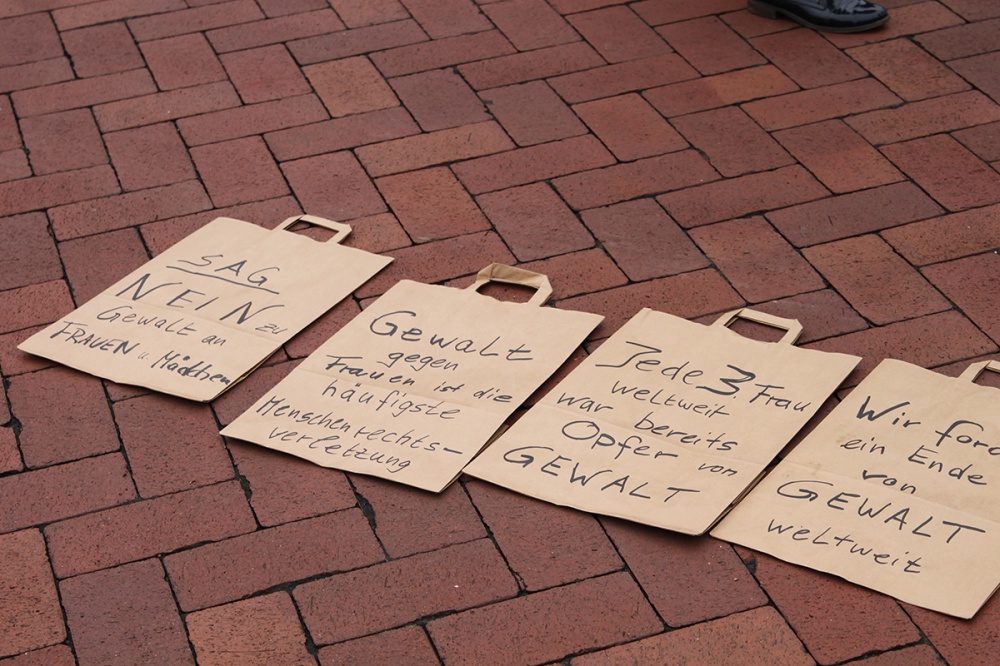 SAG
NEIN zu
Gewalt an
FRAUEN u. Mädchen
Gewalt
gegen
Frauen ist die
häufigste
Menschenrechts-
verletzung
Jede 3. Frau
weltweit
war bereits
Opfer von
GEWALT
Wir ford
ein Ende
von
GEWALT
weltweit